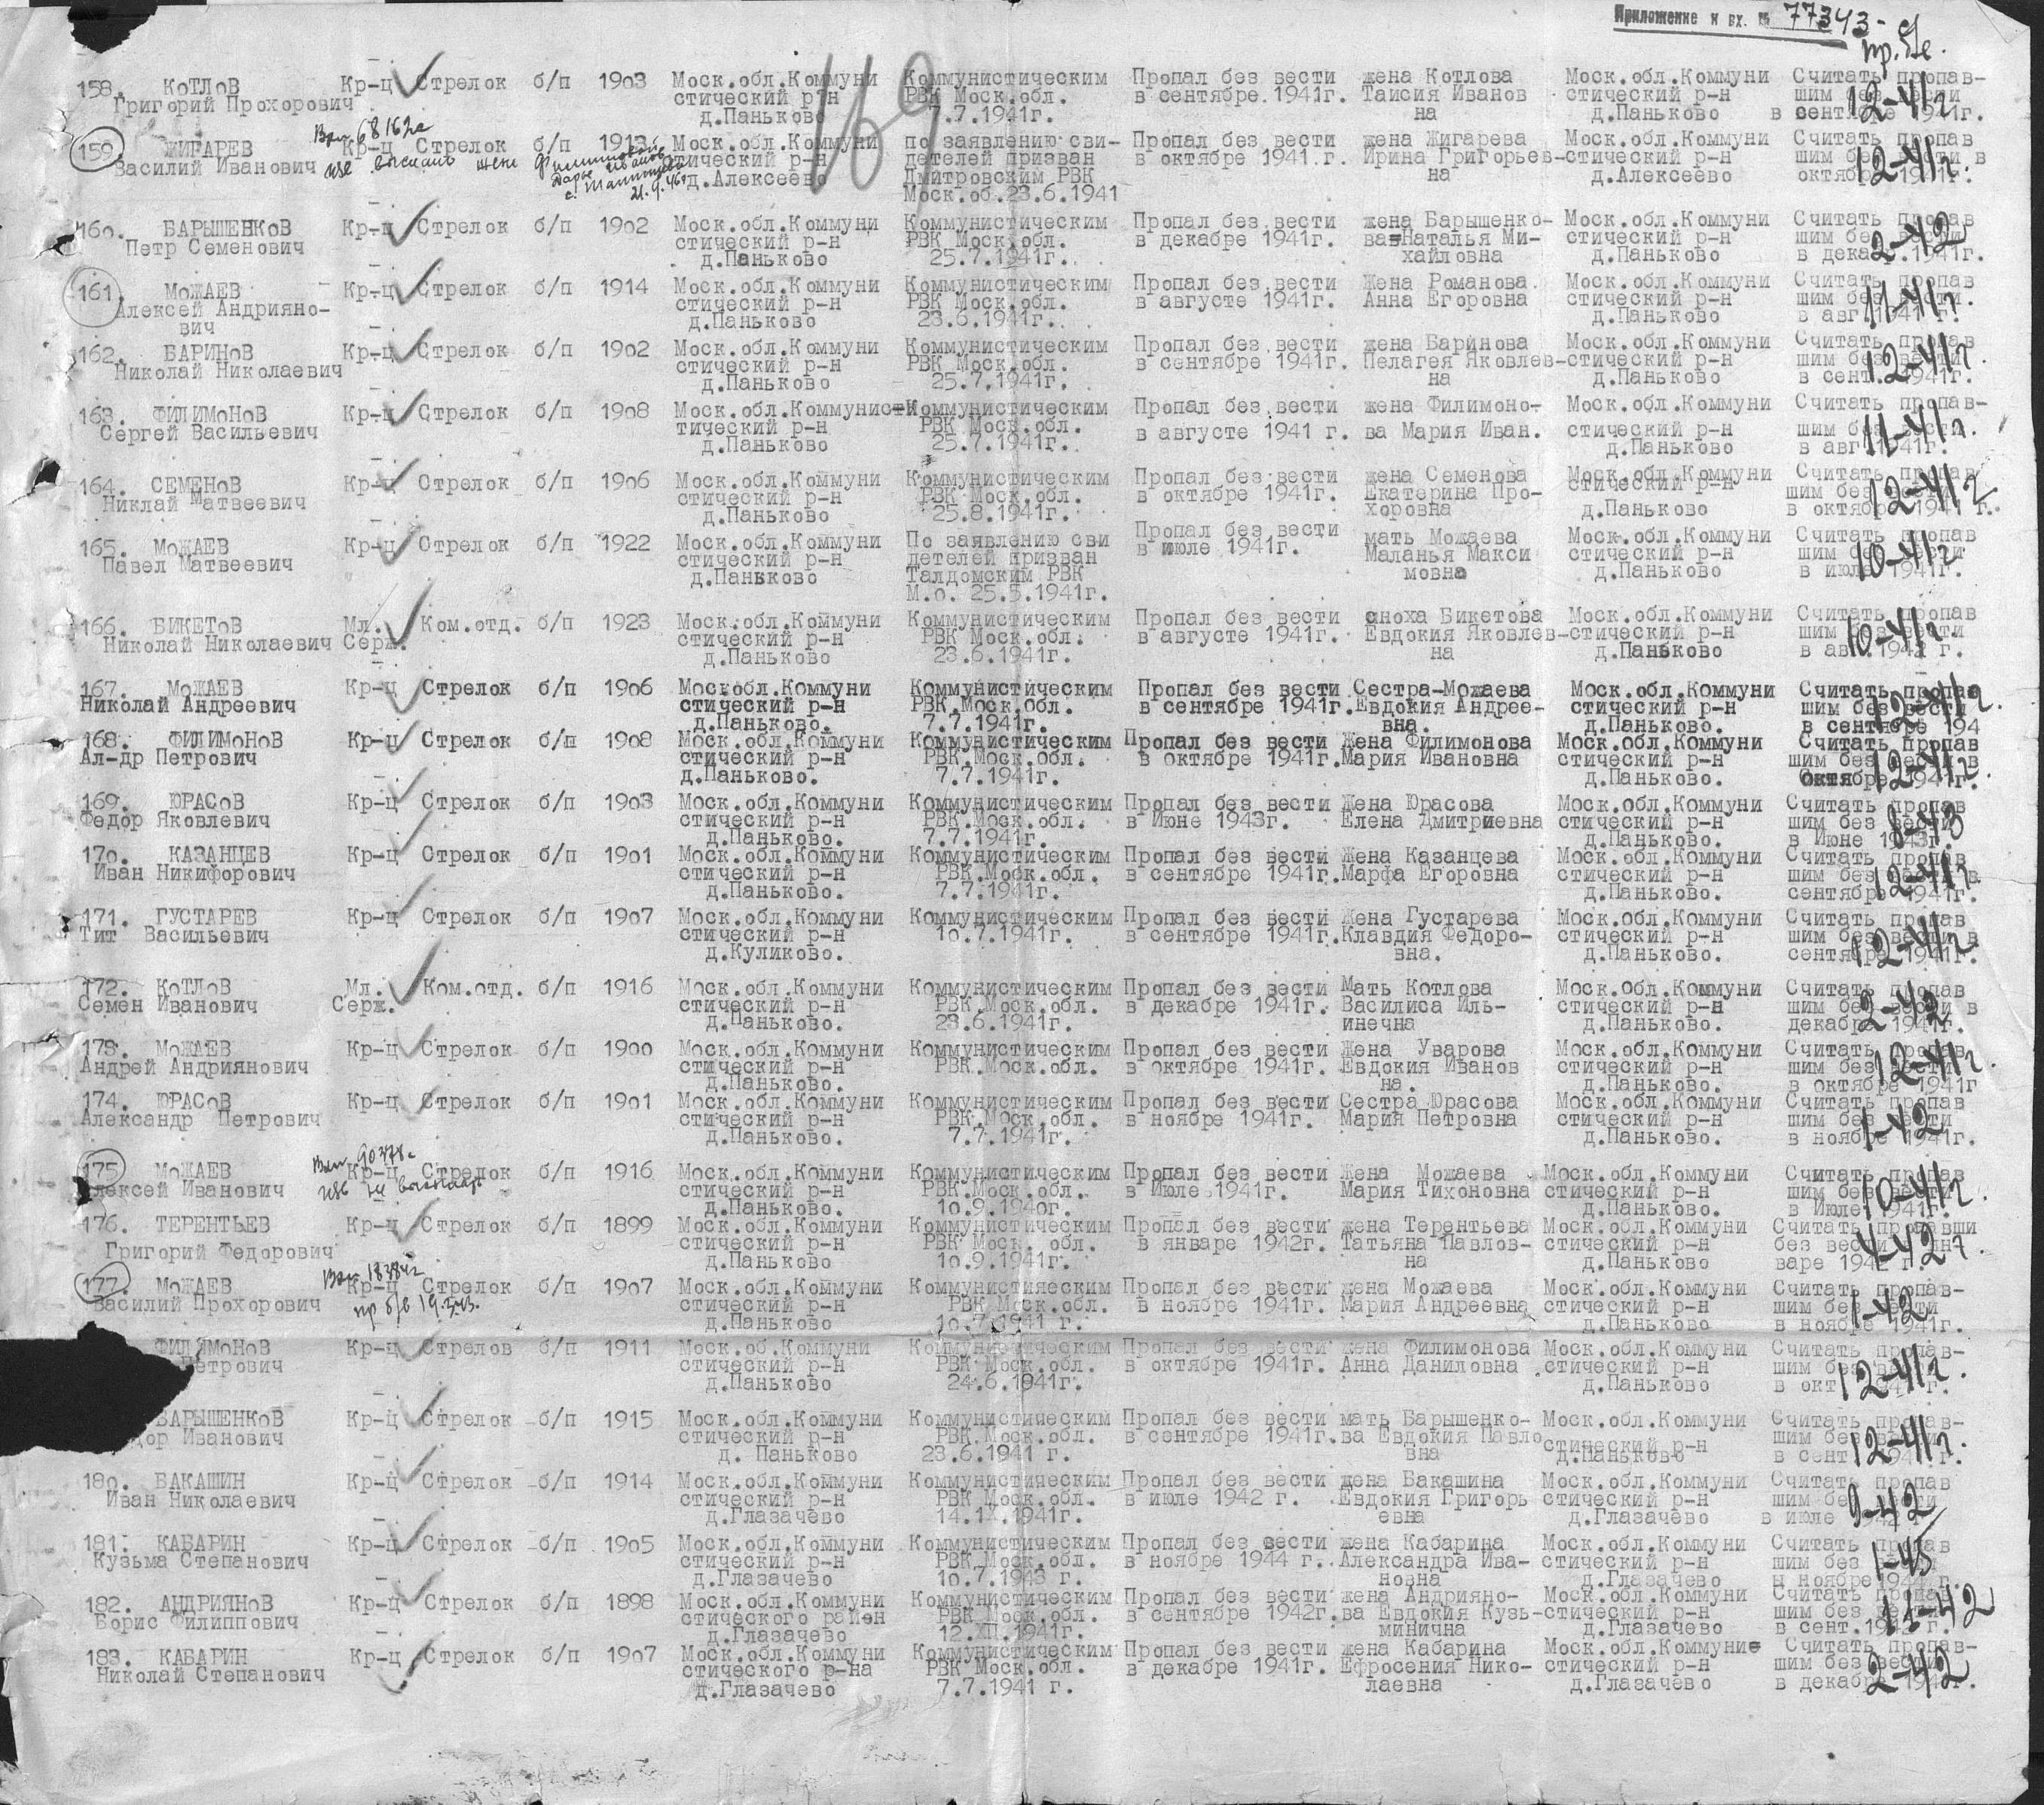 Приложение к вх. № 77343-с
пр.б/в.
169
158. КОТЛОВ Кр-ц Стрелок б/п 1903 Моск.обл.Коммуни Коммунистическим Пропал без вести жена Котлова Моск.обл.Коммуни Считать пропав-
Григорий Прохорович стический р-н РВК Моск.обл. в сентябре 1941г. Таисия Иванов стический р-н шим без вести 12-41г.
д.Паньково 7.7.1941г. на д.Паньково в сентябре 1941г.
Вх. 68162с
159 ЖИГАРЕВ Кр-ц Стрелок б/п 1913 Моск.обл.Коммуни по заявлению сви- Пропал без вести жена Жигарева Моск.обл.Коммуни Считать пропав
Василий Иванович стический р-н детелей призван в октябре 1941.г. Ирина Григорьев- стический р-н шим без вести в 12-41г.
д.Алексеево Дмитровским РВК на д.Алексеево октябре 1941г.
21.9.46г Моск.об.23.6.1941
160. БАРЫШЕНКОВ Кр-ц Стрелок б/п 1902 Моск.обл.Коммуни Коммунистическим Пропал без вести жена Барышенко- Моск.обл.Коммуни Считать пропав
Петр Семенович стический р-н РВК Моск.обл. в декабре 1941г. ва=Наталья Ми- стический р-н шим без вести 2-42
д.Паньково 25.7.1941г. хайловна д.Паньково в декаб.1941г.
161. МОЖАЕВ Кр-ц Стрелок б/п 1914 Моск.обл.Коммуни Коммунистическим Пропал без вести Жена Романова. Моск.обл.Коммуни Считать пропав
Алексей Андрияно- стический р-н РВК Моск.обл. в августе 1941г. Анна Егоровна стический р-н шим без вести. 11-41г
вич д.Паньково 23.6.1941г. д.Паньково в авг.1941 г.
162. БАРИНОВ Кр-ц Стрелок б/п 1902 Моск.обл.Коммуни Коммунистическим Пропал без вести жена Баринова Моск.обл.Коммуни Считать пропав
Николай Николаевич стический р-н РВК Моск.обл. в сентябре 1941г. Пелагея Яковлев- стический р-н шим без вести 12-41г.
д.Паньково 25.7.1941г. на д.Паньково в сент.1941г.
163. ФИЛИМОНОВ Кр-ц Стрелок б/п 1908 Моск.обл.Коммунист- Коммунистическим Пропал без вести жена Филимоно- Моск.обл.Коммуни Считать пропав-
Сергей Васильевич тический р-н РВК Моск.обл. в августе 1941 г. ва Мария Иван. стический р-н шим без вести. 11-41г.
д.Паньково 25.7.1941г. д.Паньково в авг.1941г.
164. СЕМЕНОВ Кр-ц Стрелок б/п 1906 Моск.обл.Коммуни Коммунистическим Пропал без вести жена Семенова Моск.обл.Коммуни Считать пропав
Никлай Матвеевич стический р-н РВК Моск.обл. в октябре 1941г. Екатерина Про- стический р-н шим без вести 12-41г
д.Паньково 25.8.1941г. хоровна д.Паньково в октябр 1941 г.
165. МОЖАЕВ Кр-ц Стрелок б/п 1922 Моск.обл.Коммуни По заявлению сви Пропал без вести мать Можаева Моск.обл.Коммуни Считать пропав
Павел Матвеевич стический р-н детелей призван в июле 1941г. Маланья Макси стический р-н шим без вести 10-41г
д.Паньково Талдомским РВК мовна д.Паньково в июле 1941г.
М.о. 25.5.1941г.
166. БИКЕТОВ Мл. Ком.отд. б/п 1923 Моск.обл.Коммуни Коммунистическим Пропал без вести сноха Бикетова Моск.обл.Коммуни Считать пропав
Николай Николаевич Серж. стический р-н РВК Моск.обл. в августе 1941г. Евдокия Яковлев- стический р-н шим без вести 10-41г.
д.Паньково 23.6.1941г. на д.Паньково в авг.1941 г.
167. МОЖАЕВ Кр-ц Стрелок б/п 1906 Москобл.Коммуни Коммунистическим Пропал без вести Сестра-Можаева Моск.обл.Коммуни Считать пропав
Николай Андреевич стический р-н РВК.Моск.обл. в сентябре 1941г. Евдокия Андрее- стический р-н шим без вести 12-41г.
д.Паньково. 7.7.1941г. вна. д.Паньково. в сентябре 194
168. ФИЛИМОНОВ Кр-ц Стрелок б/п 1908 Моск.обл.Коммуни Коммунистическим Пропал без вести Жена Филимонова Моск.обл.Коммуни Считать пропав
Ал-др Петрович стический р-н РВК.Моск.обл. в октябре 1941г. Мария Ивановна стический р-н шим без вести в 12-41г
д.Паньково. 7.7.1941г. д.Паньково. Октябре 1941г.
169. ЮРАСОВ Кр-ц Стрелок б/п 1903 Моск.обл.Коммуни Коммунистическим Пропал без вести Жена Юрасова Моск.обл.Коммуни Считать пропав
Федор Яковлевич стический р-н РВК.Моск.обл. в Июне 1943г. Елена Дмитриевна стический р-н шим без вести 8-43
д.Паньково. 7.7.1941г. д.Паньково. в Июне 1943г.
170. КАЗАНЦЕВ Кр-ц Стрелок б/п 1901 Моск.обл.Коммуни Коммунистическим Пропал без вести Жена Казанцева Моск.обл.Коммуни Считать пропав
Иван Никифорович стический р-н РВК.Моск.обл. в сентябре 1941г. Марфа Егоровна стический р-н шим без вести в 12-41г
д.Паньково. 7.7.1941г. д.Паньково. сентябре 1941г.
171. ГУСТАРЕВ Кр-ц Стрелок б/п 1907 Моск.обл.Коммуни Коммунистическим Пропал без вести Жена Густарева Моск.обл.Коммуни Считать пропав
Тит Васильевич стический р-н 10.7.1941г. в сентябре 1941г. Клавдия Федоро- стический р-н шим без вести в 12-41г
д.Куликово. вна. д.Паньково. сентябре 1941г.
172. КОТЛОВ Мл. Ком.отд. б/п 1916 Моск.обл.Коммуни Коммунистическим Пропал без вести Мать Котлова Моск.обл.Коммуни Считать пропав
Семен Иванович Серж. стический р-н РВК.Моск.обл. в декабре 1941г. Василиса Иль- стический р-н шим без вести в 2-42
д.Паньково. 23.6.1941г. инечна д.Паньково. декабре 1941г.
173. МОЖАЕВ Кр-ц Стрелок б/п 1900 Моск.обл.Коммуни Коммунистическим Пропал без вести Жена Уварова Моск.обл.Коммуни Считать пропав
Андрей Андриянович стический р-н РВК.Моск.обл. в октябре 1941г. Евдокия Иванов стический р-н шим без вести 12-41г.
д.Паньково. на. д.Паньково. в октябре 1941г
174. ЮРАСОВ Кр-ц Стрелок б/п 1901 Моск.обл.Коммуни Коммунистическим Пропал без вести Сестра Юрасова Моск.обл.Коммуни Считать пропав
Александр Петрович стический р-н РВК.Моск.обл. в ноябре 1941г. Мария Петровна стический р-н шим без вести 1-42
д.Паньково. 7.7.1941г. д.Паньково. в ноябре 1941г.
Вх. 90378с
175 МОЖАЕВ Кр-ц Стрелок б/п 1916 Моск.обл.Коммуни Коммунистическим Пропал без вести Жена Можаева Моск.обл.Коммуни Считать пропав
Алексей Иванович стический р-н РВК.Моск.обл. в Июле 1941г. Мария Тихоновна стический р-н шим без вести 10-41г.
д.Паньково. 10.9.1940г. д.Паньково. в Июле 1941г.
176. ТЕРЕНТЬЕВ Кр-ц Стрелок б/п 1899 Моск.обл.Коммуни Коммунистическим Пропал без вести жена Терентьева Моск.обл.Коммуни Считать пропавши
Григорий Федорович стический р-н РВК Моск. обл. в январе 1942г. Татьяна Павлов- стический р-н без вести янв 4-42г.
д.Паньково 10.9.1941г. на д.Паньково варе 1942 г
177. МОЖАЕВ Кр-ц Стрелок б/п 1907 Моск.обл.Коммуни Коммунистияеским Пропал без вести жена Можаева Моск.обл.Коммуни Считать пропав-
Василий Прохорович пр б/в стический р-н РВК Моск.обл. в ноябре 1941г. Мария Андреевна стический р-н шим без вести 1-42
д.Паньково 10.7.1941 г. д.Паньково в ноябре 1941г.
ФИЛИМОНОВ Кр-ц Стрелов б/п 1911 Моск.об.Коммуни Коммунистическим Пропал без вести жена Филимонова Моск.обл.Коммуни Считать пропав-
Петрович стический р-н РВК Моск.обл. в октябре 1941г. Анна Даниловна стический р-н шим без вести 12-41г.
д.Паньково 24.6.1941г. д.Паньково в окт 1941 г.
БАРЫШЕНКОВ Кр-ц Стрелок б/п 1915 Моск.обл.Коммуни Коммунистическим Пропал без вести мать Барышенко- Моск.обл.Коммуни Считать пропав-
дор Иванович стический р-н РВК Моск.обл. в сентябре 1941г. ва Евдокия Павло стический р-н шим без вести 12-41г.
д. Паньково 23.6.1941 г. вна д.Паньково в сент 1941 г.
180. БАКАШИН Кр-ц Стрелок б/п 1914 Моск.обл.Коммуни Коммунистическим Пропал без вести жена Бакашина Моск.обл.Коммуни Считать пропав
Иван Николаевич стический р-н РВК Моск.обл. в июле 1942 г. Евдокия Григорь стический р-н шим без вести 9-42
д.Глазачево 14.1X.1941г. евна д.Глазачево в июле 1942 г
181. КАБАРИН Кр-ц Стрелок б/п 1905 Моск.обл.Коммуни Коммунистическим Пропал без вести жена Кабарина Моск.обл.Коммуни Считать пропав
Кузьма Степанович стический р-н РВК Моск.обл. в ноябре 1944 г. Александра Ива- стический р-н шим без вести 1-45
д.Глазачево 10.7.1943 г. новна д.Глазачево н ноябре 1944г.
182. АНДРИЯНОВ Кр-ц Стрелок б/п 1898 Моск.обл.Коммуни Коммунистическим Пропал без вести жена Андрияно- Моск.обл.Коммуни Считать пропав-
Борис Филиппович стического район РВК Моск.обл. в сентябре 1942г. ва Евдокия Кузь- стический р-н шим без вести 11-42
д.Глазачево 12.XII.1941г. минична д.Глазачево в сент.1942 г.
183. КАБАРИН Кр-ц Стрелок б/п 1907 Моск.обл.Коммуни Коммунистическим Пропал без вести жена Кабарина Моск.обл.Коммуние Считать пропав-
Николай Степанович стического р-на РВК Моск.обл. в декабре 1941г. Ефросения Нико- стический р-н шим без вести 2-42
д.Глазачево 7.7.1941 г. лаевна д.Глазачево в декабр 1941г.